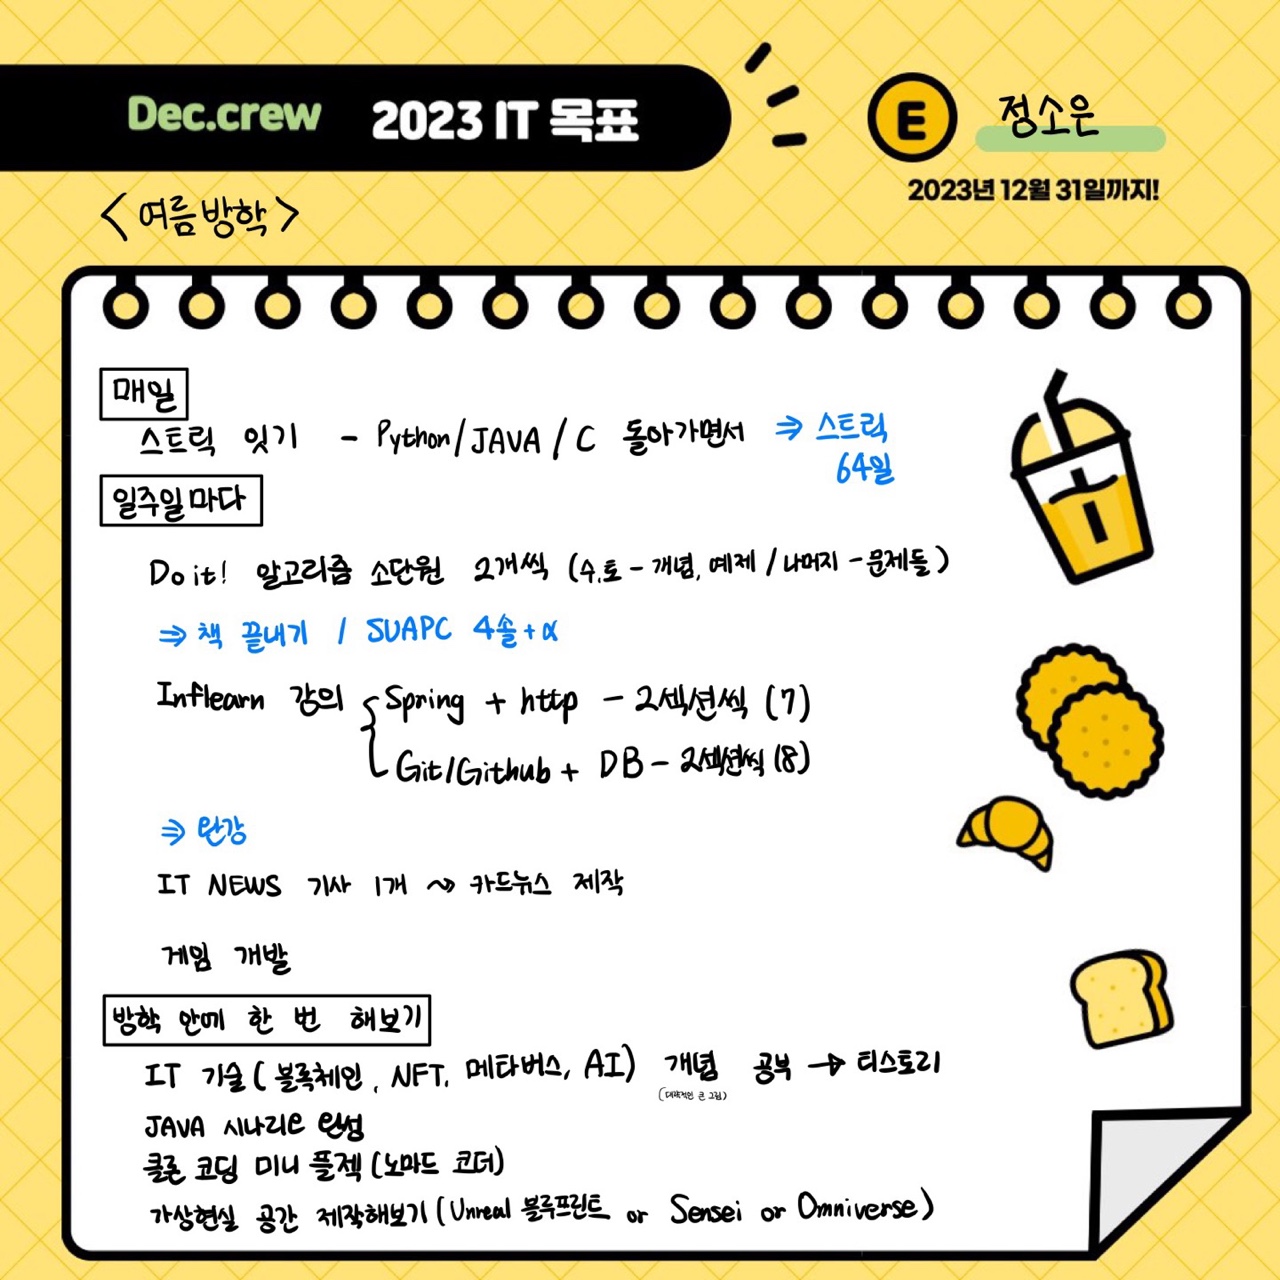 Dec.crew 2023 IT 목표
E 정소은
2023년 12월 31일까지!
<여름방학>
매일
스트릭 잇기 - Python/JAVA/C 돌아가면서 ⇒ 스트릭
64일
일주일마다
Do it! 알고리즘 소단원 2개씩 (수,토 - 개념, 예제 / 나머지 - 문제들)
⇒ 책 끝내기 / SUAPC 4솔+α
Inflearn 강의 { Spring + http - 2섹션씩 (7)
Git/Github + DB - 2섹션씩 (8)
⇒ 완강
IT NEWS 기사 1개 ~> 카드뉴스 제작
게임 개발
방학 안에 한 번 해보기
IT 기술(블록체인, NFT, 메타버스, AI) 개념 공부 → 티스토리
(대략적인 큰 그림)
JAVA 시나리오 완성
클론 코딩 미니 플젝(노마드 코더)
가상현실 공간 제작해보기(Unreal 블루프린트 or Sensei or Omniverse)